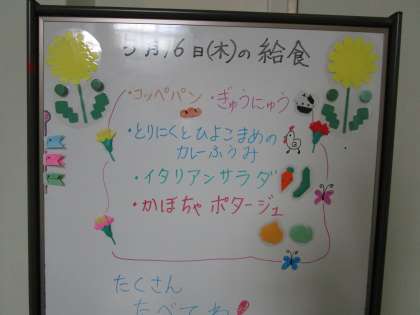 5月16日(木)の給食
・コッペパン ・ぎゅうにゅう
・とりにくとひよこまめの
カレーふうみ
・イタリアンサラダ
・かぼちゃポタージュ
たくさん
たべてね